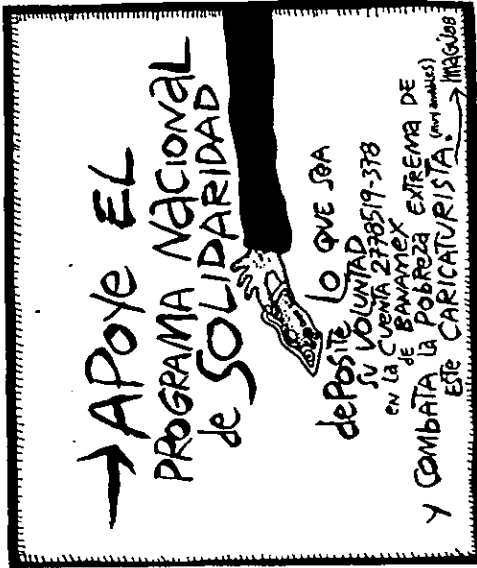 → APOYE EL
PROGRAMA NACIONAL
de SOLIDARIDAD
dePOSITE LO QUE SEA
SU VOLUNTAD
EN LA CUENTA 2778519-378
de BANAMEX
Y COMBATA LA POBREZA EXTREMA DE
ESTE CARICATURISTA. (muy amables)
→ IMAGÚ88